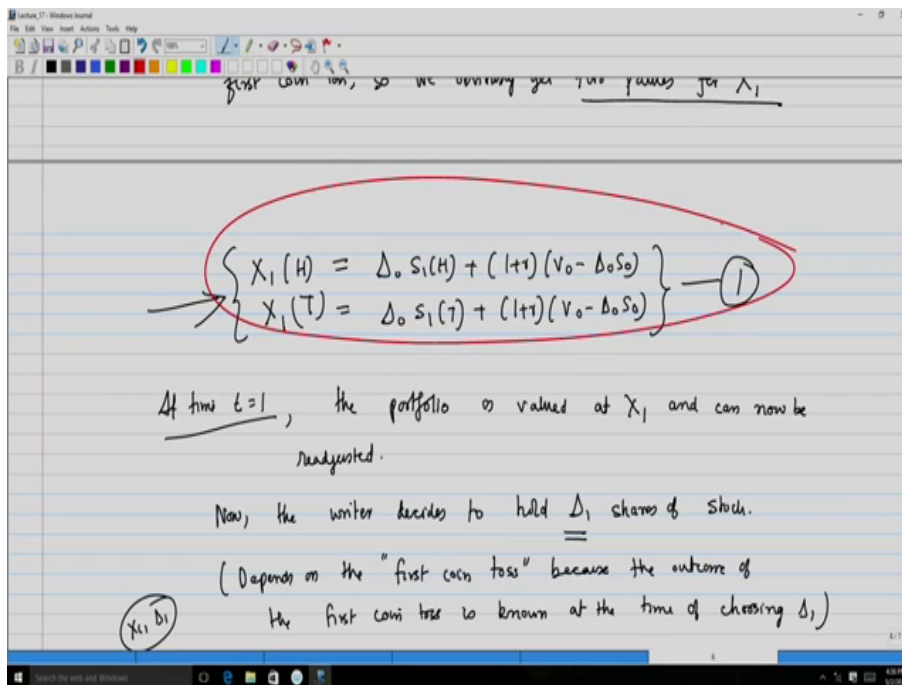 Lecture_17 - Windows Journal
File Edit View Insert Actions Tools Help
B I
first coin toss, so we obviously get two values for X₁
X₁(H) = Δ₀ S₁(H) + (1+r)(V₀ - Δ₀S₀)
X₁(T) = Δ₀ S₁(T) + (1+r)(V₀ - Δ₀S₀)
— 1
At time t=1, the portfolio is valued at X₁ and can now be
readjusted.
Now, the writer decides to hold Δ₁ shares of stock.
(Depends on the "first coin toss" because the outcome of
the first coin toss is known at the time of choosing Δ₁)
X₁, Δ₁
6/7
6
Search the web and Windows